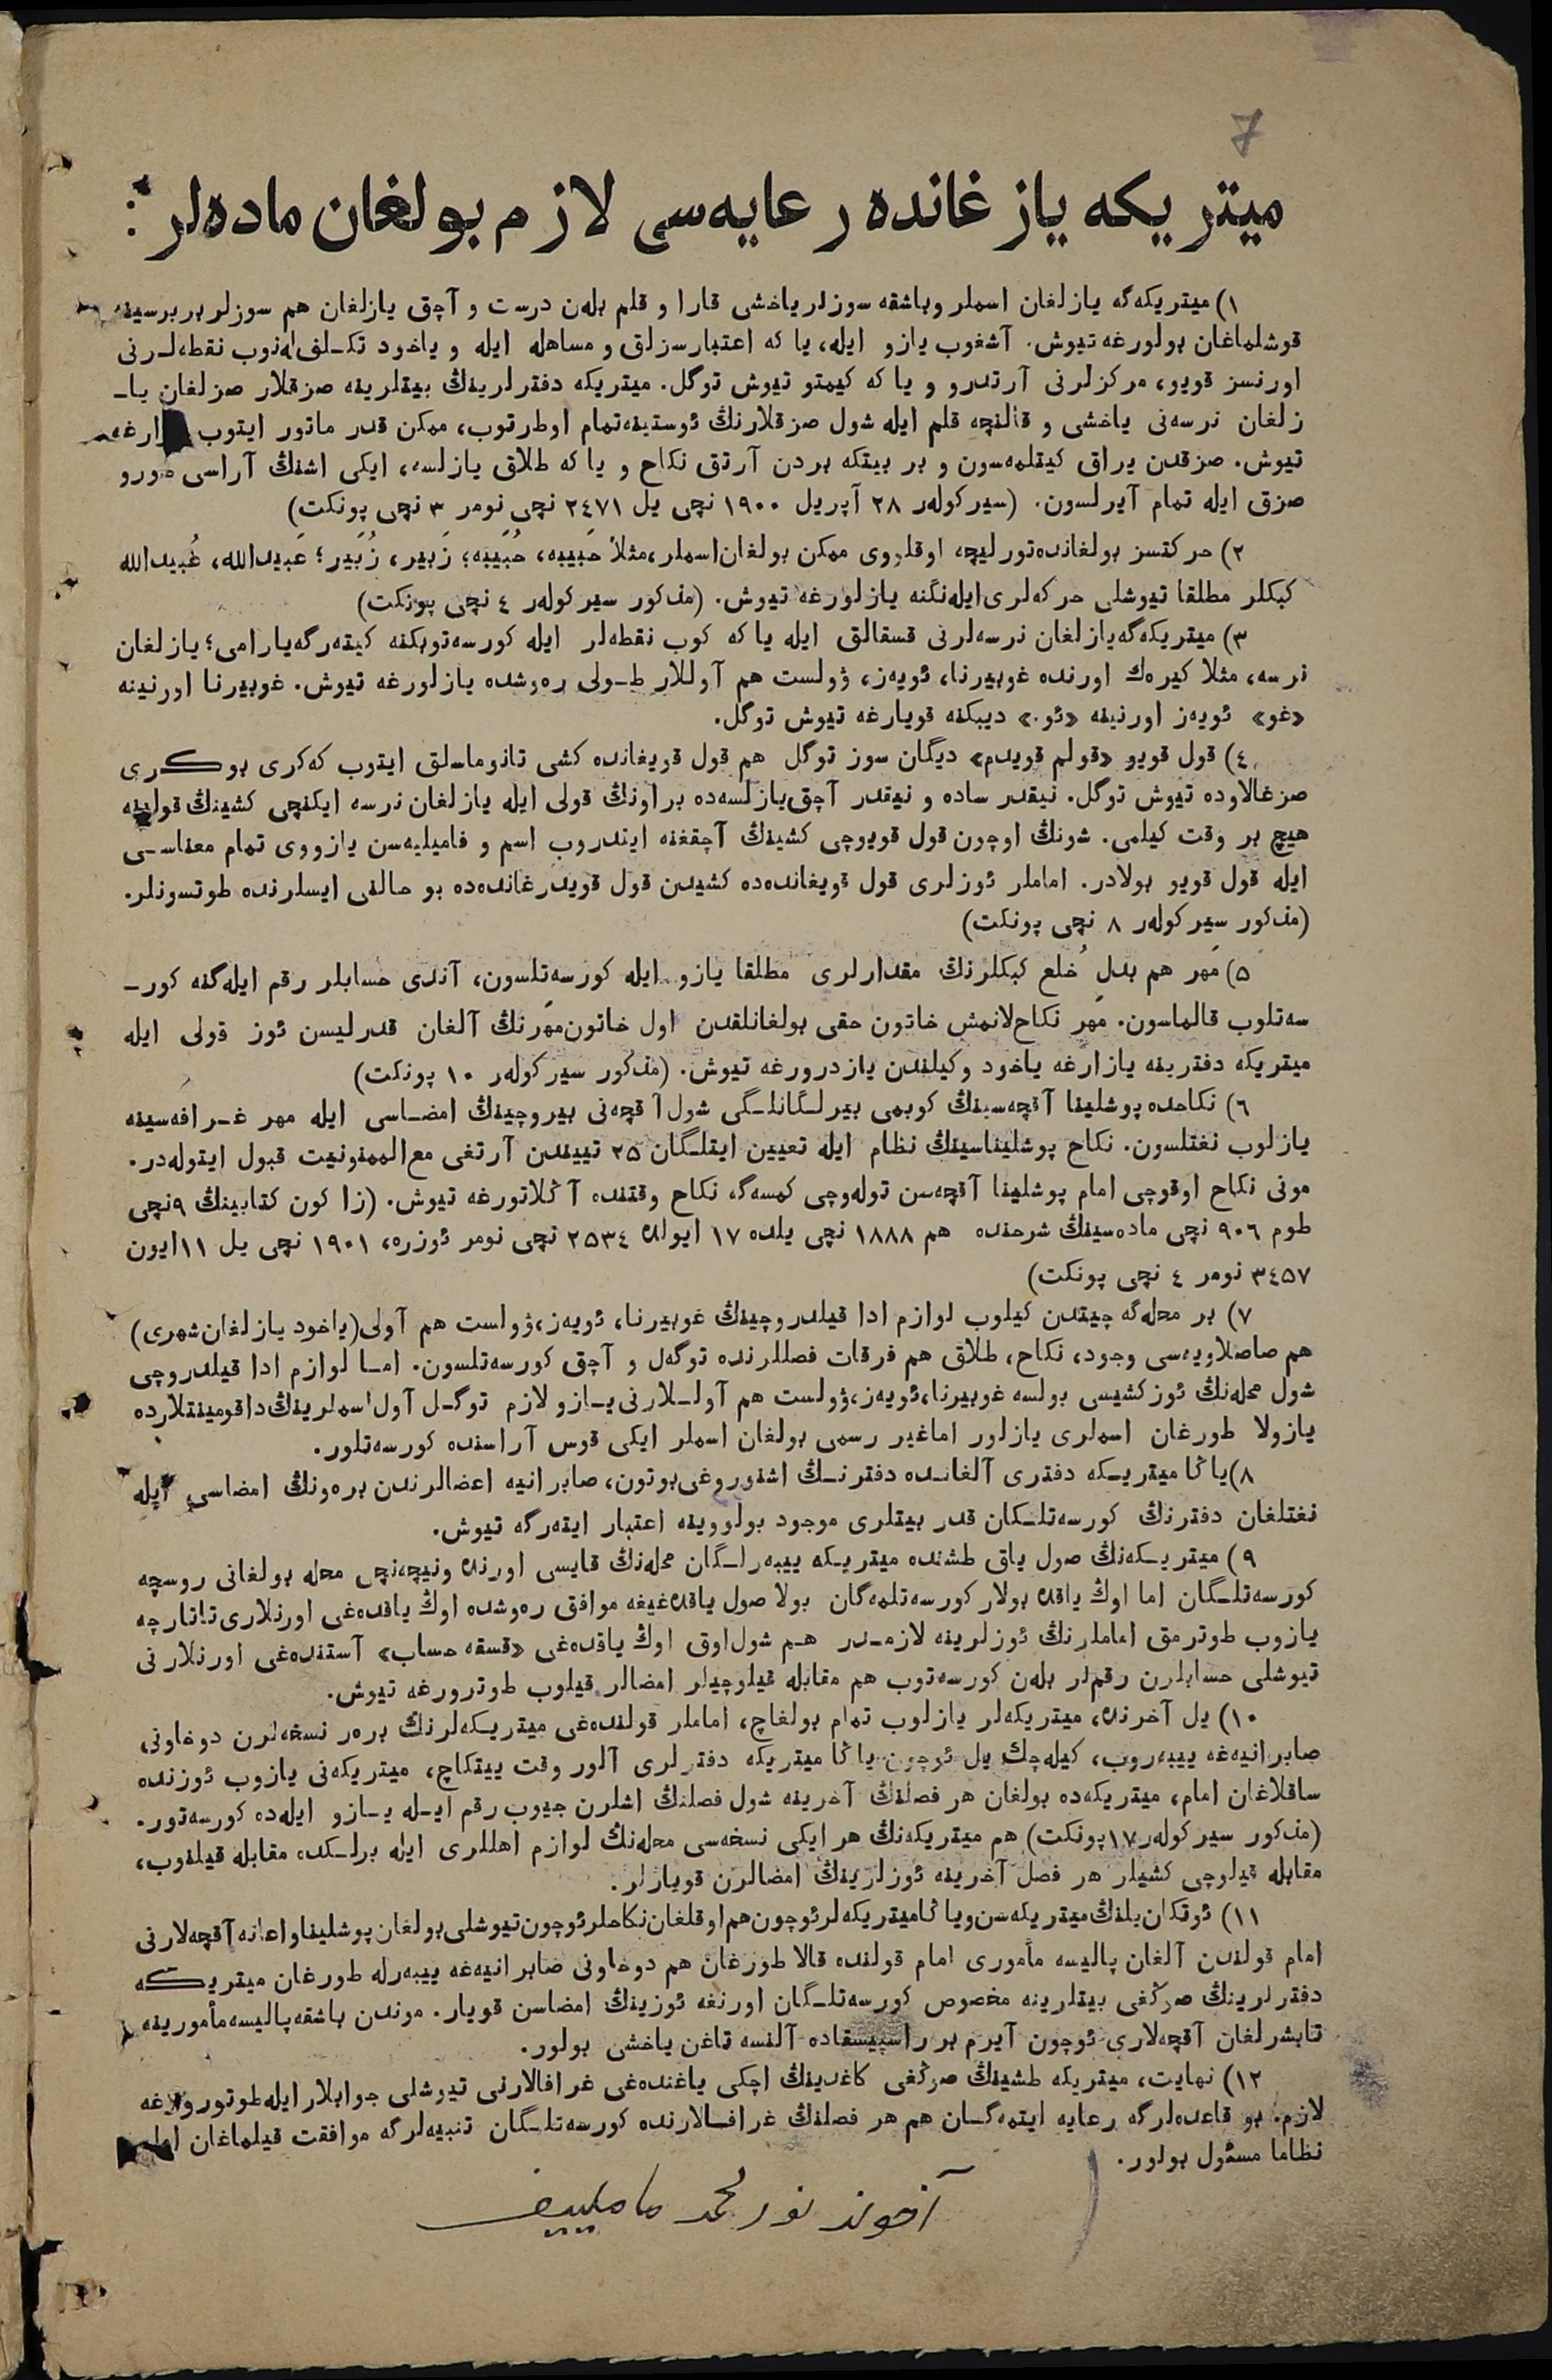 7
میتریكه یازغانده رعایه‌سی لازم بولغان ماده‌لر:
١) میتریكه‌گه یازلغان اسملر وباشقه سوزلر یاخشی قارا و قلم بله‌ن درست و آچق یازلغان هم سوزلر بربرسینه
قوشلماغان بولورغه تیوش. آشغوب یازو ایله، یا كه اعتبارسزلق و مساهله ایله و یاخود تكـلف‌له‌نوب نقطه‌لـرنی
اورنسز قویو، مركزلرنی آرتدرو و یا كه كیمتو تیوش توگل. میتریكه دفترلرینڭ بیتلرینه صزقلار صزلغان یا-
زلغان نرسه‌نی یاخشی و قالنچه قلم ایله شول صزقلارنڭ ئوستینه‌تمام اوطرتوب، ممكن قدر ماتور ایتوب
تیوش. صزقدن یراق كیتلمه‌سون و بر بیتكه بردن آرتق نكاح و یا كه طلاق یازلسه، ایكی اشنڭ آراسی
صزق ایله تمام آیرلسون. (سیركوله‌ر ٢٨ آپریل ١٩٠٠ نچی یل ٢٤٧١ نچی نومر ٣ نچی پونكت)
٢) حركتسز بولغانده‌تورلیچه اوقلووی ممكن بولغان‌اسملر،مثلا حَبیبه، حُبَیبه؛ زَبیر، زُبَیر؛ عَبیدالله، عُبیدالله
كبكلر مطلقا تیوشلی حركه‌لری‌ایله‌نگنه یازلورغه تیوش. (مذكور سیركوله‌ر ٤ نچی پونكت)
٣) میتریكه‌گه‌یازلغان نرسه‌لرنی قسقالق ایله یا كه كوب نقطه‌لر ایله كورسه‌توبكنه كیته‌رگه‌یارامی؛ یازلغان
نرسه، مثلا كیره‌ك اورنده غوبیرنا، ئویه‌ز، ۋولست هم آوللار طـولی ره‌وشده یازلورغه تیوش. غوبیرنا اورنینه
«غو» ئویه‌ز اورنینه «ئو.» دیبكنه قویارغه تیوش توگل.
٤) قول قویو «قولم قویدم» دیگان سوز توگل هم قول قویغانده كشی تانوماسلق ایتوب كه‌كری بوكری
صزغالاوده تیوش توگل. نیقدر ساده و نیقدر آچق‌یازلسه‌ده براونڭ قولی ایله یازلغان نرسه ایكنچی كشینڭ قولینه
هیچ بر وقت كیلمی. شونڭ اوچون قول قویوچی كشینڭ آچقغنه ایتدروب اسم و فامیلیه‌سن یازووی تمام معناسـی
ایله قول قویو بولادر. اماملر ئوزلری قول قویغانده‌ده كشیدن قول قویدرغانده‌ده بو حالنی ایسلرنده طوتسونلر.
(مذكور سیركوله‌ر ٨ نچی پونكت)
٥) مَهر هم بدلِ خُلع كبكلرنڭ مقدارلری مطلقا یازو ایله كورسه‌تلسون، آندی حسابلر رقم ایله‌گنه كور-
سه‌تلوب قالماسون. مَهر نكاح‌لانمش خاتون حقی بولغانلقدن اول خاتون‌مَهرنڭ آلغان قدرلیسن ئوز قولی ایله
میتریكه دفترینه یازارغه یاخود وكیلندن یازدرورغه تیوش. (مذكور سیركوله‌ر ١٠ پونكت)
٦) نكاحده پوشلینا آقچه‌سینڭ كوبمی بیرلـگانلـگی شول آقچه‌نی بیروچینڭ امضـاسی ایله مهر غـرافه‌سینه
یازلوب نغتلسون. نكاح پوشلیناسینڭ نظام ایله تعیین ایتلـگان ٢٥ تییندن آرتغی مع‌الممنونیت قبول ایتوله‌در.
مونی نكاح اوقوچی امام پوشلینا آقچه‌سن توله‌وچی كمسه‌گه، نكاح وقتنده آڭلاتورغه تیوش. (زاكون كتابینڭ ٩نچی
طوم ٩٠٦ نچی ماده‌سینڭ شرحنده هم ١٨٨٨ نچی یلده ١٧ ایولده ٢٥٣٤ نچی نومر ئوزره، ١٩٠١ نچی یل ١١ایون
٣٤٥٧ نومر ٤ نچی پونكت)
٧) بر محله‌گه چیتدن كیلوب لوازم ادا قیلدروچینڭ غوبیرنا، ئویه‌ز،ۋولست هم آولی(یاخود یازلغان‌شهری)
هم صاصلاویه‌سی وجود، نكاح، طلاق هم فرقات فصللرنده توگه‌ل و آچق كورسه‌تلسون. امـا لوازم ادا قیلدروچی
شول محله‌نڭ ئوز كشیسی بولسه غوبیرنا،ئویه‌ز،ۋولست هم آولـلارنی یـازو لازم توگـل آول‌اسملرینڭ‌داقومینتلارده
یازولا طورغان اسملری یازلور اماغیر رسمی بولغان اسملر ایكی قوس آراسنده كورسه‌تلور.
٨)یاڭا میتریـكه دفتری آلغانـده دفترنـڭ اشنوروغی‌بوتون، صابرانیه اعضالرندن بره‌ونڭ امضاسی ایله
نغتلغان دفترنڭ كورسه‌تلـكان قدر بیتلری موجود بولووینه اعتبار ایته‌رگه تیوش.
٩) میتریـكه‌نڭ صول یاق طشنده میتریـكه ییبه‌رلـگان محله‌نڭ قایسی اورنده ونیچه‌نچی محله بولغانی روسچه
كورسه‌تلـگان اما اوڭ یاقده بولار كورسه‌تلمه‌گان بولا صول یاقده‌غیغه موافق ره‌وشده اوڭ یاقده‌غی اورنلاری‌تاتارچه
یازوب طوترمق اماملرنڭ ئوزلرینه لازمـدر هـم شول‌اوق اوڭ یاقده‌غی «قسقه حساب» آستنده‌غی اورنلارنی
تیوشلی حسابلرن رقملر بله‌ن كورسه‌توب هم مقابله قیلوچیلر امضالر قیلوب طوترورغه تیوش.
١٠) یل آخرنده، میتریكه‌لر یازلوب تمام بولغاچ، اماملر قولنده‌غی میتریـكه‌لرنڭ بره‌ر نسخه‌لرن دوخاونی
صابرانیه‌غه ییبه‌روب، كیله‌چك یل ئوچون یاڭا میتریكه دفترلری آلور وقت ییتكاچ، میتریكه‌نی یازوب ئوزنده
ساقلاغان امام، میتریكه‌ده بولغان هر فصلنڭ آخرینه شول فصلنڭ اشلرن جیوب رقم ایـله یـازو ایله‌ده كورسه‌تور.
(مذكور سیركوله‌ر ١٧پونكت) هم میتریكه‌نڭ هر ایكی نسخه‌سی محله‌نڭ لوازم اهللری ایله برلـكده مقابله قیلنوب،
مقابله قیلوچی كشیلر هر فصل آخرینه ئوزلرینڭ امضالرن قویارلر.
١١) ئوتكان‌یلنڭ‌میتریكه‌سن‌ویاڭامیتریكه‌لرئوچون‌هم‌اوقلغان‌نكاحلرئوچون‌تیوشلی‌بولغان‌پوشلیناواعانه‌آقچه‌لارنی
امام قولندن آلغان پالیسه مأموری امام قولنده قالا طورغان هم دوخاونی صابرانیه‌غه ییبه‌رله طورغان میتریكه
دفترلرینڭ صوڭغی بیتلرینه مخصوص كورسه‌تلـگان اورنغه ئوزینڭ امضاسن قویار. موندن باشقه‌پالیسه‌مأمورینه
تابشرلغان آقچه‌لاری ئوچون آیرم بر راسپیسقاده آلنسه تاغن یاخشی بولور.
١٢) نهایت، میتریكه طشینڭ صوڭغی كاغدینڭ اچكی یاغنده‌غی غرافالارنی تیوشلی جوابلارایله‌طوتورورغه
لازم. بو قاعده‌لرگه رعایه ایتمه‌گـان هم هر فصلنڭ غرافـالارنده كورسه‌تلـگان تنبیه‌لرگه موافقت قیلماغان امام
نظاما مسئول بولور.
آخوند نور محمد ماملییف